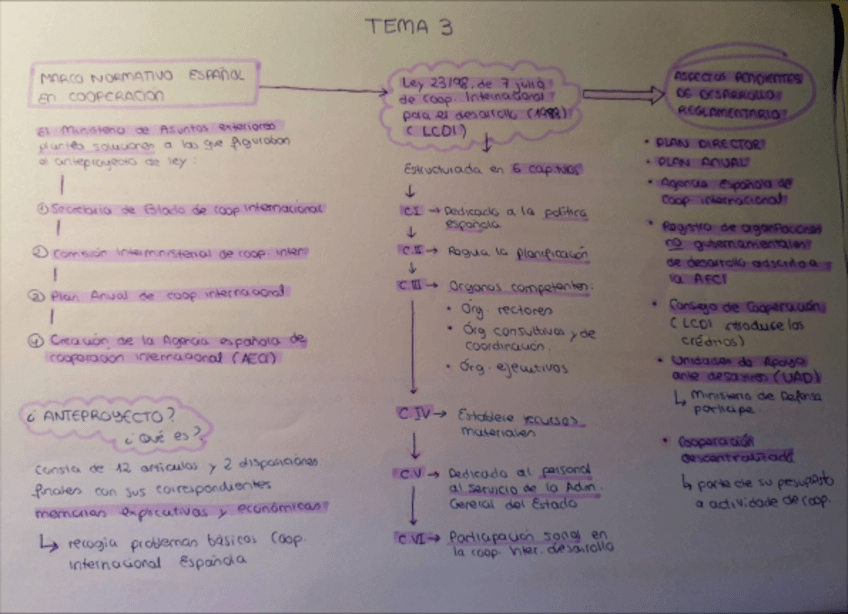 TEMA 3
MARCO NORMATIVO ESPAÑOL
EN COOPERACION
El Ministerio de Asuntos exteriores
plantea soluciones a las que figuraban
el anteproyecto de ley:
① Secretaria de Estado de coop internacional
② Comisión Interministerial de coop. inter
③ Plan Anual de coop internacional
④ Creación de la Agencia española de
cooperación internacional (AECI)
¿ANTEPROYECTO?
¿QUÉ ES?
Consta de 12 artículos y 2 disposiciones
finales con sus correspondientes
memorias explicativas y económicas
↳ recogia problemas básicos Coop.
Internacional Española
Ley 23/98, de 7 julio
de coop. Internacional
para el desarrollo (1998)
(LCDI)
Estructurada en 6 capítulos
C.I → Dedicado a la política
española
C.II → Regula la planificación
C.III → Organos competentes:
• Órg rectores
• Órg consultivos y de
coordinación.
• Órg. ejecutivos
C.IV → Establece recursos
materiales
C.V → Dedicado al personal
al servicio de la Adm.
General del Estado
C.VI → Participación social en
la coop. Inter. desarrollo
ASPECTOS PENDIENTES
DE DESARROLLO
REGLAMENTARIO
• PLAN DIRECTOR
• PLAN ANUAL
• Agencia Española de
Coop internacional
• Registro de organizaciones
no gubernamentales
de desarrollo adscrito a
la AECI
• Consejo de Cooperación
(LCDI introduce los
créditos)
• Unidades de Apoyo
ante desastres (UAD)
↳ Ministerio de Defensa
participe.
• Cooperación
descentralizada
↳ parte de su pesupuesto
a actividade de coop.